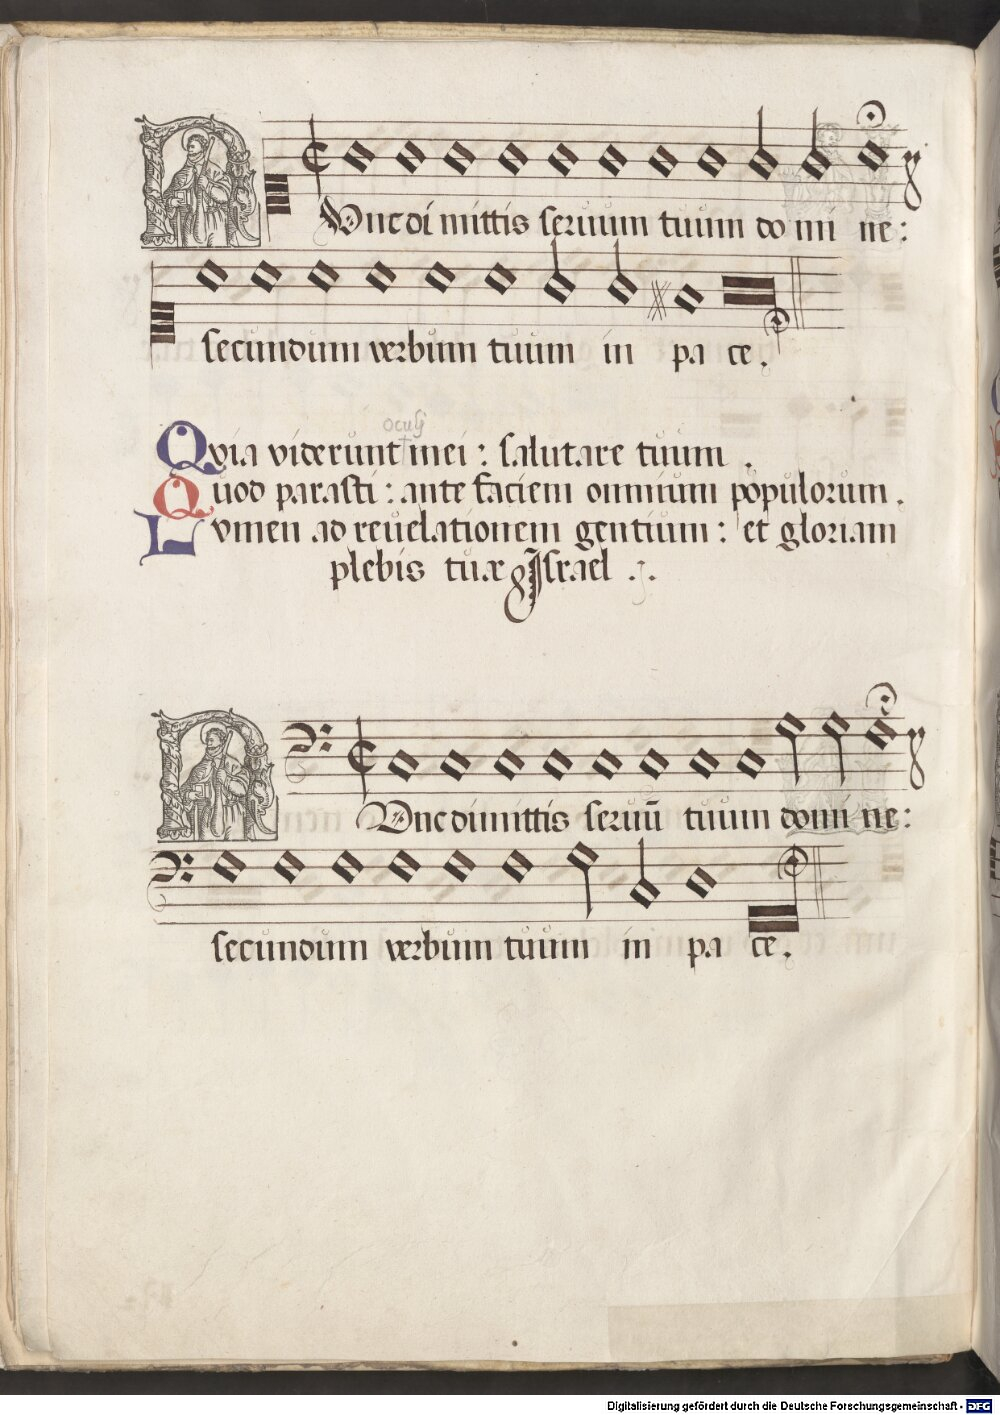 NVnc di mittis seruum tuum do mi ne:
secundum verbum tuum in pa ce.
oculj
Qvia viderunt mei: salutare tuum.
Quod parasti: ante faciem omnium populorum.
Lvmen ad reuelationem gentium: et gloriam
plebis tuæ Israel.
NVnc dimittis seruū tuum domi ne:
secundum verbum tuum in pa ce.
Digitalisierung gefördert durch die Deutsche Forschungsgemeinschaft - DFG